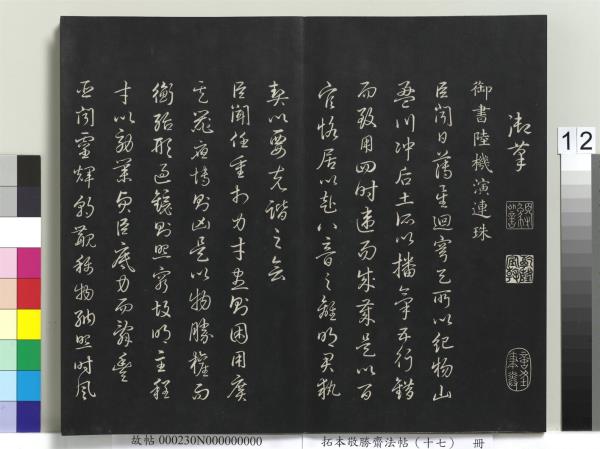 御筆
御書陸機演連珠
臣聞日薄星迴穹天所以紀物山
盈川冲后土所以播氣五行錯
而致用四時違而成歲是以百
官恪居以赴八音之離明君執
契以要克諧之會
臣聞任重於力才盡則困用廣
其器應博則凶是以物勝權而
衡殆形過鏡則照窮故明主程
才以效業貞臣底力而辭豐
臣聞靈輝朝覯稱物納照時風
乾隆宸翰
12
故帖 000230N000000000
拓本敬勝齋法帖（十七） 冊